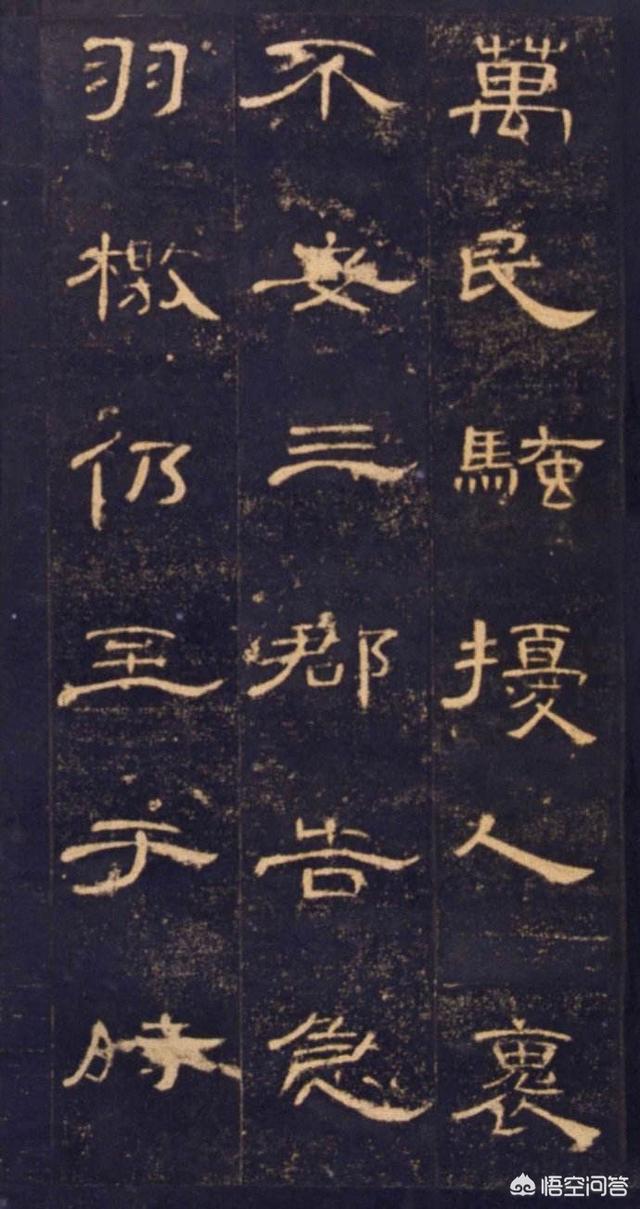 萬民騷擾人褱
不安三郡告急
羽檄仍至于時
悟空问答